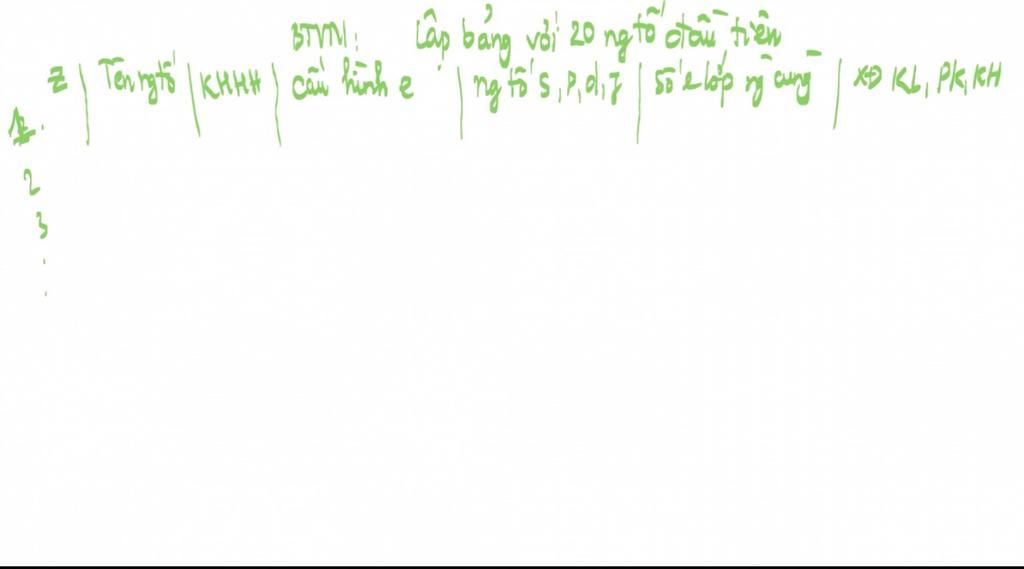 BTVN: Lập bảng với 20 ng tố đầu tiên
Z | Tên ng tố | KHHH | cấu hình e | ng tố s, p, d, f | số e lớp ng cùng | XĐ KL, PK, KH
1.
2
3
.
.